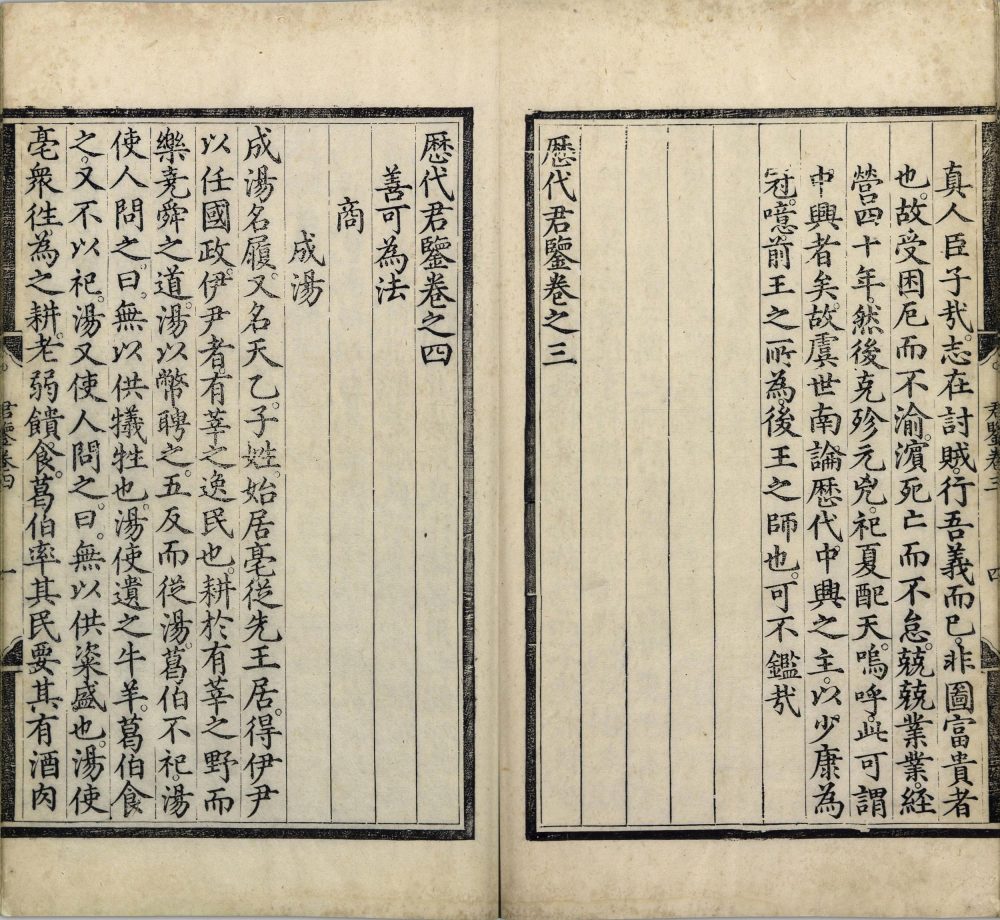 真人臣子㢤。志在討賊。行吾義而已。非圖富貴者
也。故受困厄而不渝。濵死亡而不怠。兢兢業業。経
營四十年。然後克殄元兇。祀夏配天。嗚呼。此可謂
中興者矣。故虞世南論歴代中興之主。以少康為
冠。噫。前王之所為。後王之師也。可不鑑㢤
歴代君鑒卷之三
君鑒卷三
四
歴代君鑒卷之四
善可為法
商
成湯
成湯名履。又名天乙。子姓。始居亳。從先王居。得伊尹
以任國政。伊尹者。有莘之逸民也。耕於有莘之野。而
樂堯舜之道。湯以幣聘之。五反而從湯。葛伯不祀。湯
使人問之。曰。無以供犧牲也。湯使遺之牛羊。葛伯食
之。又不以祀。湯又使人問之。曰。無以供粢盛也。湯使
亳衆徃為之耕。老弱饋食。葛伯率其民要其有酒肉
君鑒卷四
一